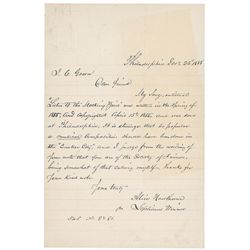 Philadelphia Dec 26th 1885
S. C. Gould
Dear Friend
My Song, entitled
"Listen to the Mocking Bird" was written in the Spring of
1855, and Copyrighted April 13th 1855, and was done
at Philadelphia. It is strange that so popular
a musical Composition should have been done in
the "Quaker City", and I judge from the wording of
your note that you are of the Society of Friends,
being somewhat of that calling myself. Thanks for
your kind note.
Yours truly
Alice Hawthorne
or
Septimus Winner